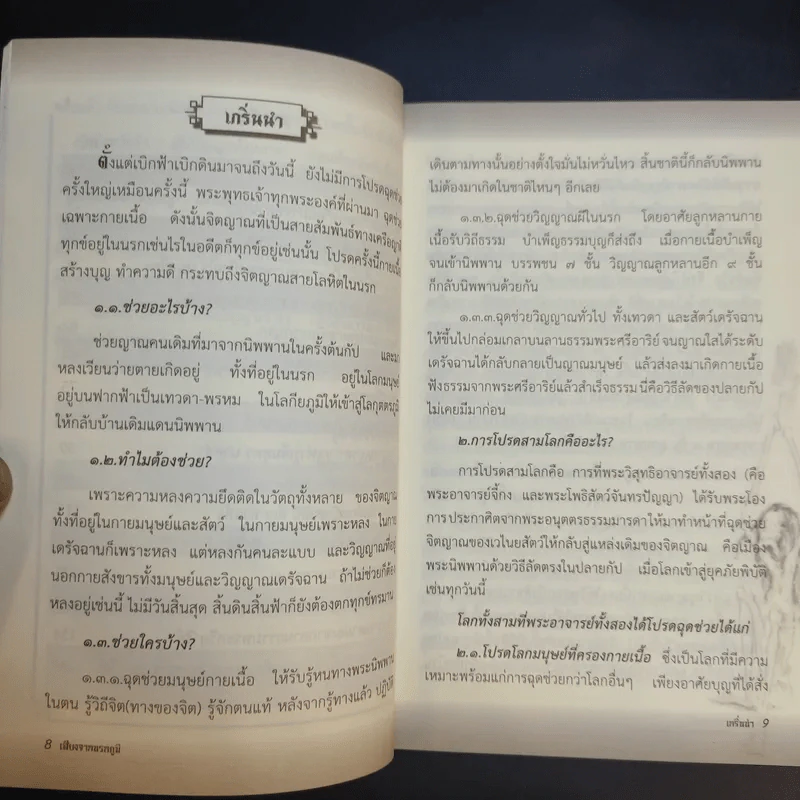 เกริ่นนำ
ตั้งแต่เบิกฟ้าเบิกดินมาจนถึงวันนี้ ยังไม่มีการโปรดฉุดช่วย
ครั้งใหญ่เหมือนครั้งนี้ พระพุทธเจ้าทุกพระองค์ที่ผ่านมา ฉุดช่วย
เฉพาะกายเนื้อ ดังนั้นจิตญาณที่เป็นสายสัมพันธ์ทางเครือญาติ
ทุกข์อยู่ในนรกเช่นไรในอดีตก็ทุกข์อยู่เช่นนั้น โปรดครั้งนี้กายเนื้อ
สร้างบุญ ทำความดี กระทบถึงจิตญาณสายโลหิตในนรก
๑.๑.ช่วยอะไรบ้าง?
ช่วยญาณคนเดิมที่มาจากนิพพานในครั้งต้นกัป และมา
หลงเวียนว่ายตายเกิดอยู่ ทั้งที่อยู่ในนรก อยู่ในโลกมนุษย์
อยู่บนฟากฟ้าเป็นเทวดา-พรหม ในโลกียภูมิให้เข้าสู่โลกุตตรภูมิ
ให้กลับบ้านเดิมแดนนิพพาน
๑.๒.ทำไมต้องช่วย?
เพราะความหลงความยึดติดในวัตถุทั้งหลาย ของจิตญาณ
ทั้งที่อยู่ในกายมนุษย์และสัตว์ ในกายมนุษย์เพราะหลง ในกาย
เดรัจฉานก็เพราะหลง แต่หลงกันคนละแบบ และวิญญาณที่อยู่
นอกกายสังขารทั้งมนุษย์และวิญญาณเดรัจฉาน ถ้าไม่ช่วยก็ต้อง
หลงอยู่เช่นนี้ ไม่มีวันสิ้นสุด สิ้นดินสิ้นฟ้าก็ยังต้องตกทุกข์ทรมาน
๑.๓.ช่วยใครบ้าง?
๑.๓.๑.ฉุดช่วยมนุษย์กายเนื้อ ให้รับรู้หนทางพระนิพพาน
ในตน รู้วิถีจิต(ทางของจิต) รู้จักตนแท้ หลังจากรู้ทางแล้ว ปฏิบัติ
8 เสียงจากนรกภูมิ
เดินตามทางนั้นอย่างตั้งใจมั่นไม่หวั่นไหว สิ้นชาตินี้ก็กลับนิพพาน
ไม่ต้องมาเกิดในชาติไหนๆ อีกเลย
๑.๓.๒.ฉุดช่วยวิญญาณผีในนรก โดยอาศัยลูกหลานกาย
เนื้อรับวิถีธรรม บำเพ็ญธรรมบุญก็ส่งถึง เมื่อกายเนื้อบำเพ็ญ
จนเข้านิพพาน บรรพชน ๗ ชั้น วิญญาณลูกหลานอีก ๙ ชั้น
ก็กลับนิพพานด้วยกัน
๑.๓.๓.ฉุดช่วยวิญญาณทั่วไป ทั้งเทวดา และสัตว์เดรัจฉาน
ให้ขึ้นไปกล่อมเกลาบนลานธรรมพระศรีอาริย์ จนญาณใสได้ระดับ
เดรัจฉานได้กลับกลายเป็นญาณมนุษย์ แล้วส่งลงมาเกิดกายเนื้อ
ฟังธรรมจากพระศรีอาริย์แล้วสำเร็จธรรม นี่คือวิธีลัดของปลายกัป
ไม่เคยมีมาก่อน
๒.การโปรดสามโลกคืออะไร?
การโปรดสามโลกคือ การที่พระวิสุทธิอาจารย์ทั้งสอง (คือ
พระอาจารย์จี้กง และพระโพธิสัตว์จันทรปัญญา) ได้รับพระโอง
การประกาศิตจากพระอนุตตรธรรมมารดาให้มาทำหน้าที่ฉุดช่วย
จิตญาณของเวไนยสัตว์ให้กลับสู่แหล่งเดิมของจิตญาณ คือเมือง
พระนิพพานด้วยวิธีลัดตรงในปลายกัป เมื่อโลกเข้าสู่ยุคภัยพิบัติ
เช่นทุกวันนี้
โลกทั้งสามที่พระอาจารย์ทั้งสองได้โปรดฉุดช่วยได้แก่
๒.๑.โปรดโลกมนุษย์ที่ครองกายเนื้อ ซึ่งเป็นโลกที่มีความ
เหมาะพร้อมแก่การฉุดช่วยกว่าโลกอื่นๆ เพียงอาศัยบุญที่ได้สั่ง
เกริ่นนำ 9